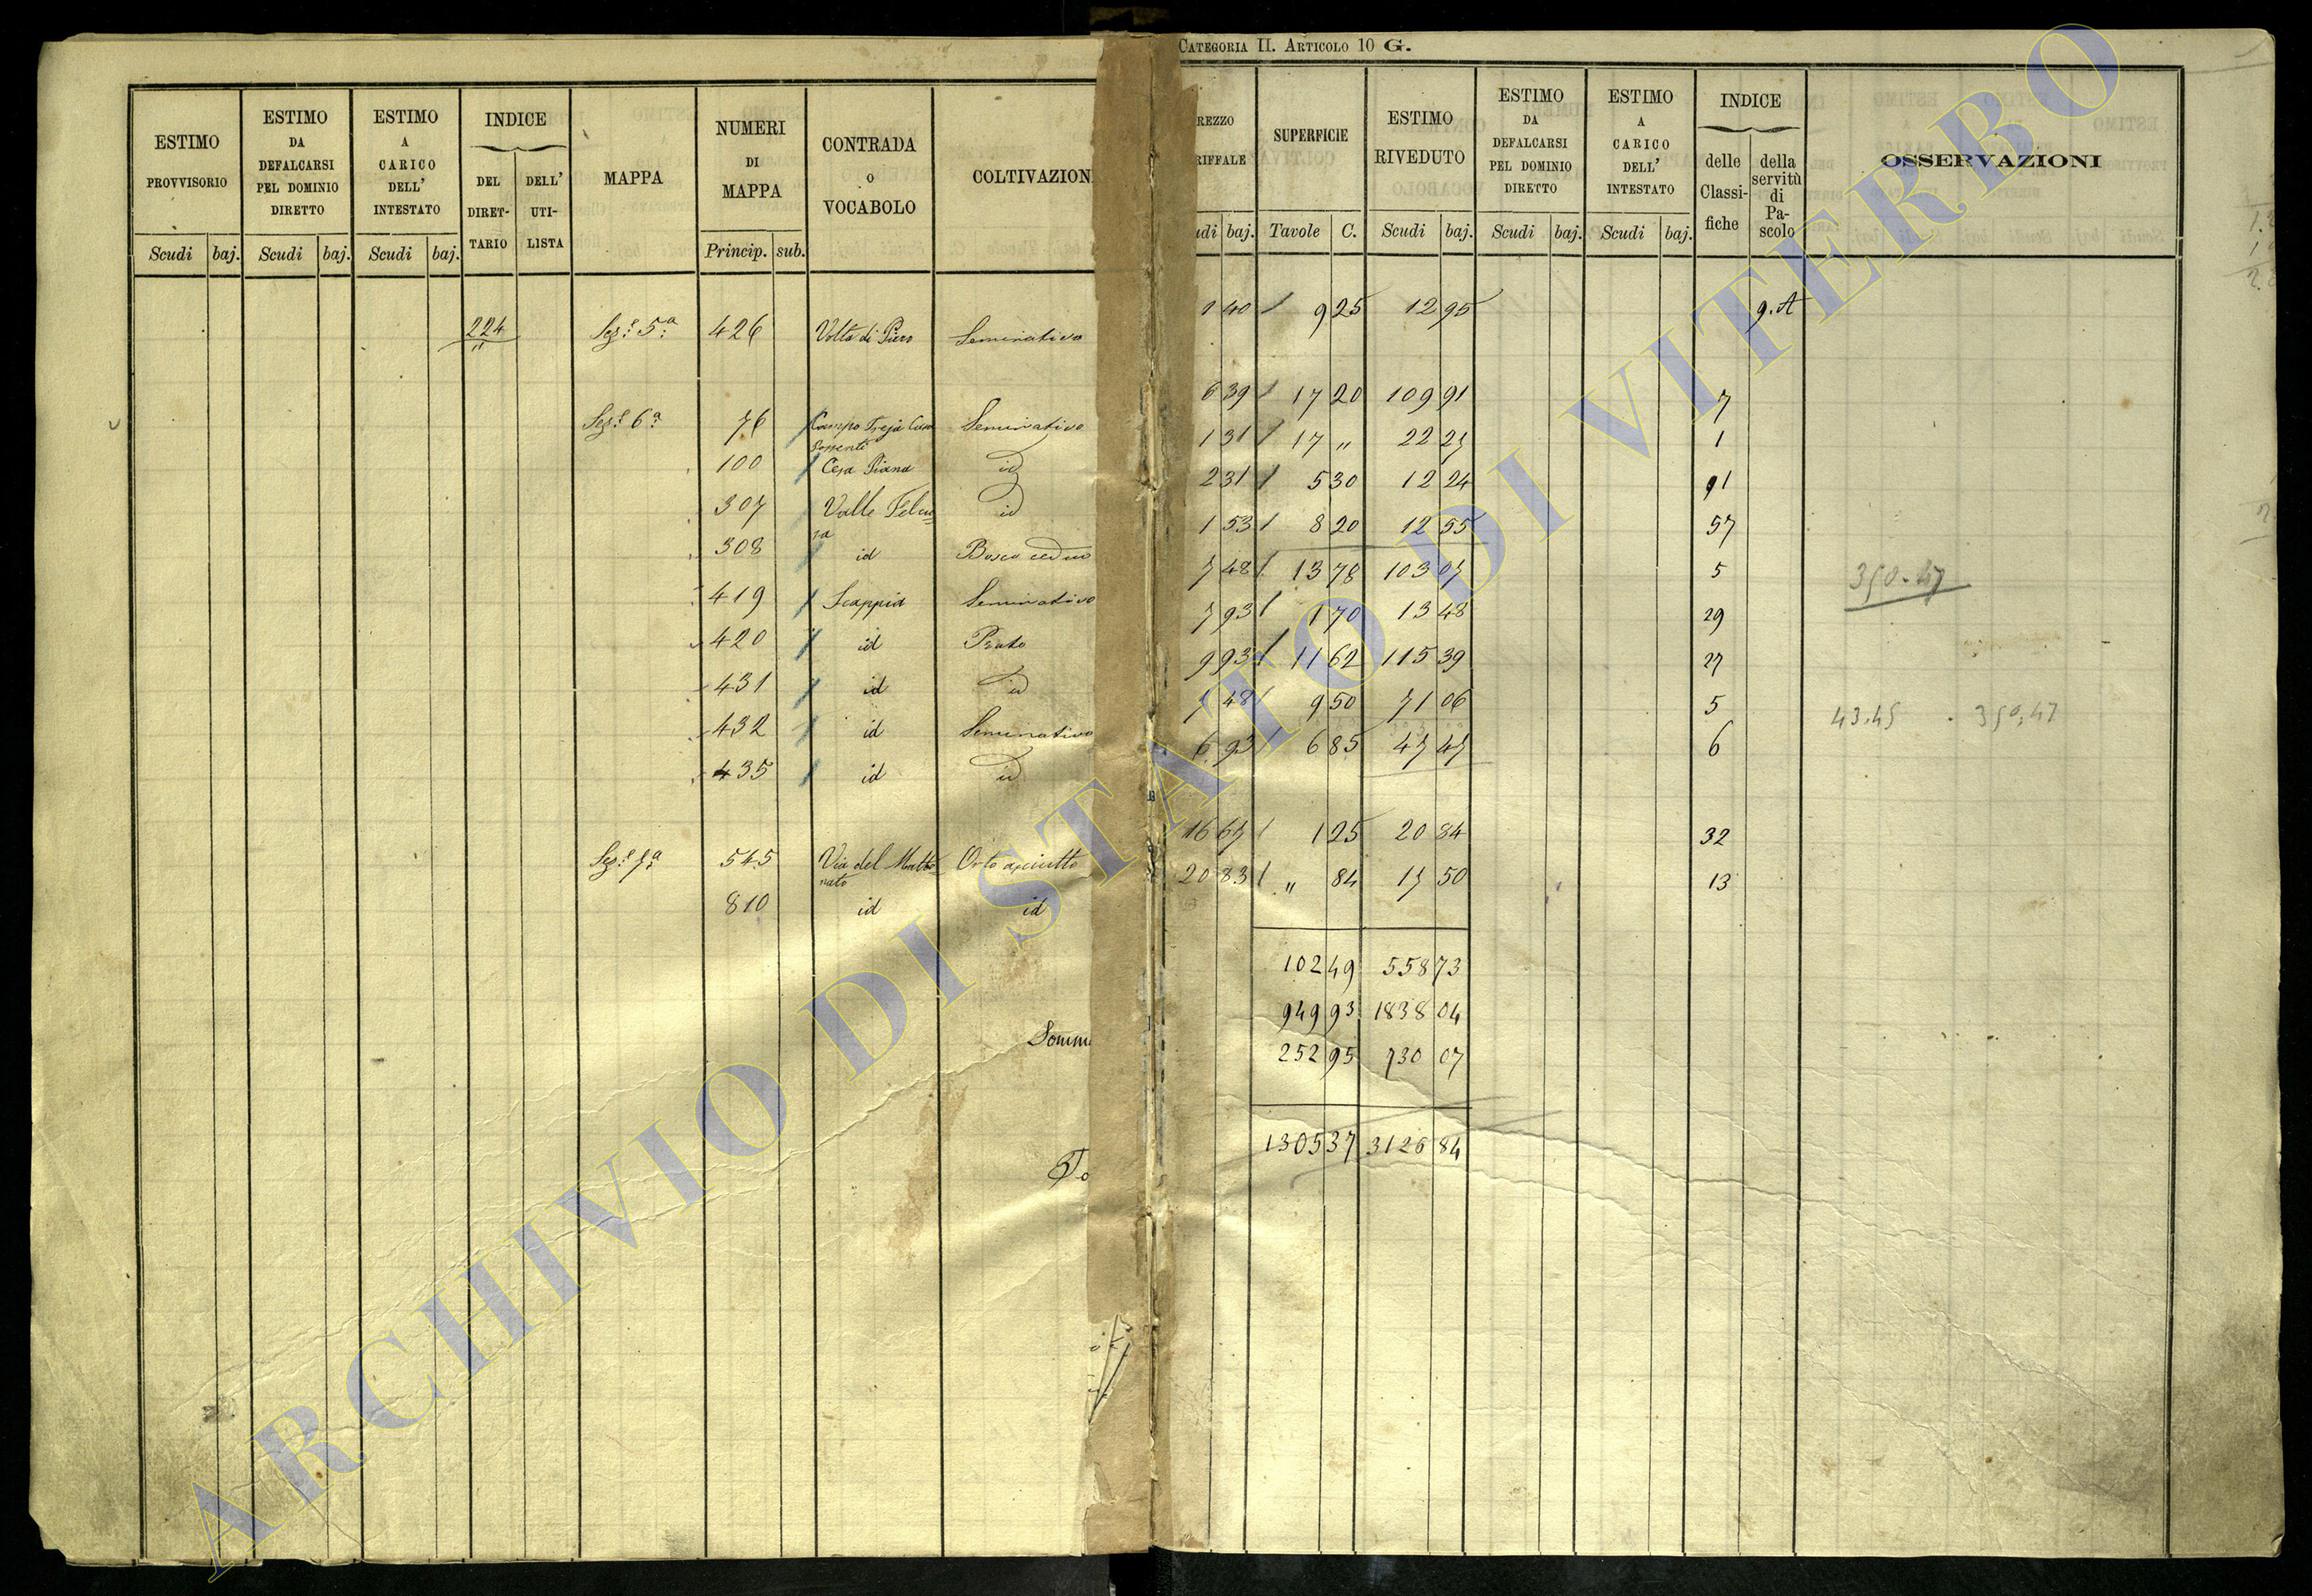 CATEGORIA II. ARTICOLO 10 G.
ESTIMO PROVVISORIO
ESTIMO DA DEFALCARSI PEL DOMINIO DIRETTO
ESTIMO A CARICO DELL' INTESTATO
INDICE
DEL DIRET- TARIO
DELL' UTI- LISTA
MAPPA
NUMERI DI MAPPA
CONTRADA o VOCABOLO
COLTIVAZION
Scudi baj. Scudi baj. Scudi baj. Princip. sub.
224 Sez.e 5.a 426 Volta di Piero Seminativo
"
Sez.e 6.a 76 Campo Treja Seminativo
100 Cesa Piana id
307 Valle Felciu= id
za
308 id Bosco ceduo
419 Scappia Seminativo
420 id Prato
431 id id
432 id Seminativo
435 id id
Sez.e 7.a 545 Via del Matto= Orto asciutto
nato
810 id id
Somm
To
REZZO RIFFALE
SUPERFICIE
ESTIMO RIVEDUTO
ESTIMO DA DEFALCARSI PEL DOMINIO DIRETTO
ESTIMO A CARICO DELL' INTESTATO
INDICE
delle Classi- fiche
della servitù di Pa- scolo
OSSERVAZIONI
udi baj. Tavole C. Scudi baj. Scudi baj. Scudi baj.
1 40 9 25 12 95 9.A
6 39 17 20 109 91 7
1 31 17 " 22 27 1
2 31 5 30 12 24 91
1 53 8 20 12 55 57
7 48 13 78 103 07 5 350.47
7 93 1 70 13 48 29
9 93 11 62 115 39 27
7 48 9 50 71 06 5 43.45 . 350.47
6 93 6 85 47 47 6
16 67 1 25 20 84 32
20 83 " 84 17 50 13
102 49 558 73
949 93 1838 04
252 95 730 07
1305 37 3126 84
ARCHIVIO DI STATO DI VITERBO